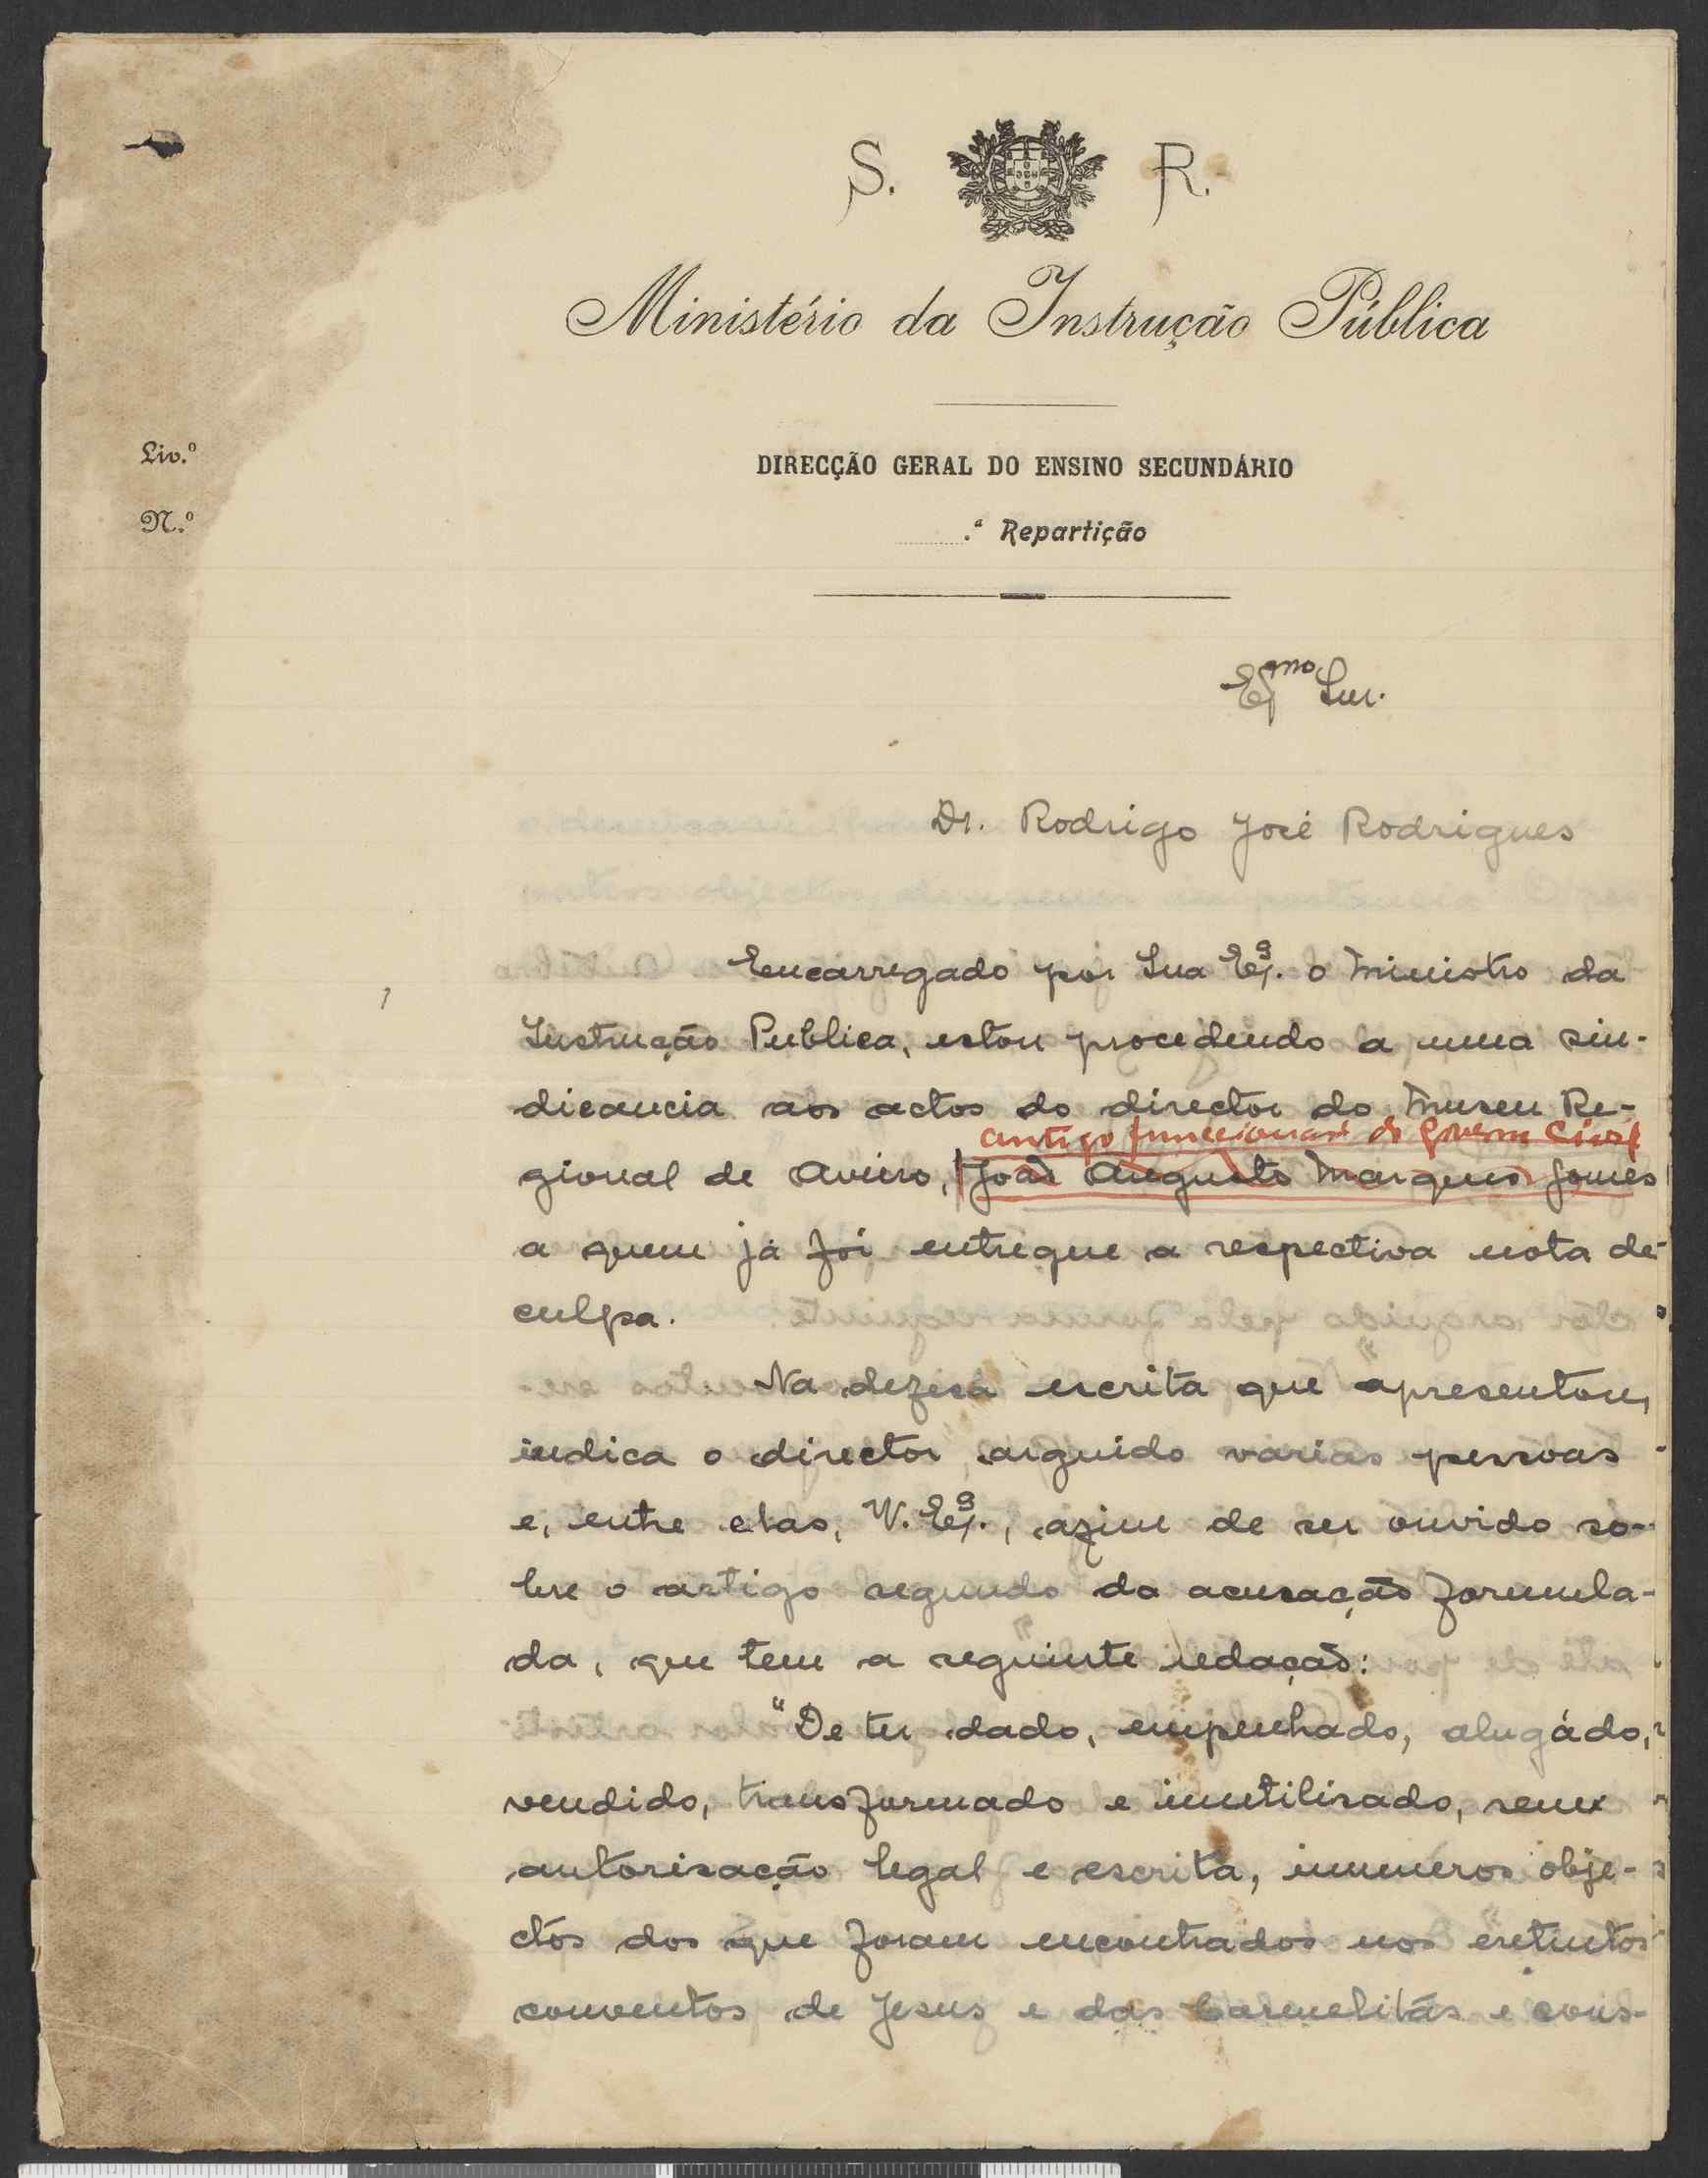 S. R.
Ministério da Instrução Pública
Liv.º
DIRECÇÃO GERAL DO ENSINO SECUNDÁRIO
N.º
.ª Repartição
Exmo Snr.
Dr. Rodrigo José Rodrigues
Encarregado por Sua Exª. o Ministro da
Instrução Publica, estou procedendo a uma sin-
dicancia aos actos do director do Museu Re-
antigo funccionario do Governo Civil
gional de Aveiro, João Augusto Marques Gomes
a quem já foi entregue a respectiva nota de
culpa.
Na defesa escrita que apresentou,
indica o director arguido várias pessoas
e, entre elas, V. Exª., afim de ser ouvido sô-
bre o artigo segundo da acusação formula-
da, que tem a seguinte redação:
"De ter dado, empenhado, alugádo,
vendido, transformado e inutilisado, sem
autorisação legal e escrita, inumeros obje-
ctos dos que foram encontrados nos extintos
conventos de Jesus e das Carmelitas e cons-